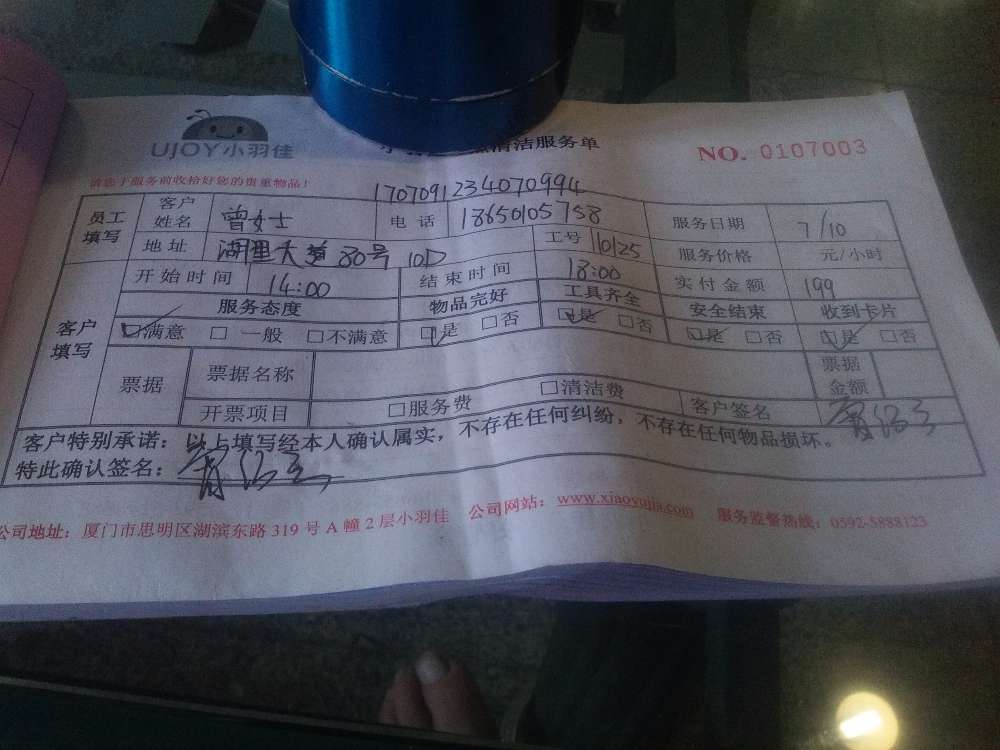 UJOY小羽佳
清洁服务单
NO. 0107003
请您于服务前收拾好您的贵重物品!
1707091234070994
员工填写 客户姓名 曾女士 电话 18650105758 服务日期 7/10
地址 湖里大道80号 10D 工号 10125 服务价格 元/小时
客户填写 开始时间 14:00 结束时间 18:00 实付金额 199
服务态度 物品完好 工具齐全 安全结束 收到卡片
☑满意 □ 一般 □不满意 ☑是 □否 ☑是 □否 ☑是 □否 ☑是 □否
票据 票据名称 票据金额
开票项目 □服务费 □清洁费 客户签名
客户特别承诺：以上填写经本人确认属实，不存在任何纠纷，不存在任何物品损坏。
特此确认签名：
公司地址：厦门市思明区湖滨东路 319 号 A 幢 2 层小羽佳 公司网站：www.xiaoyujia.com 服务监督热线：0592-5888123